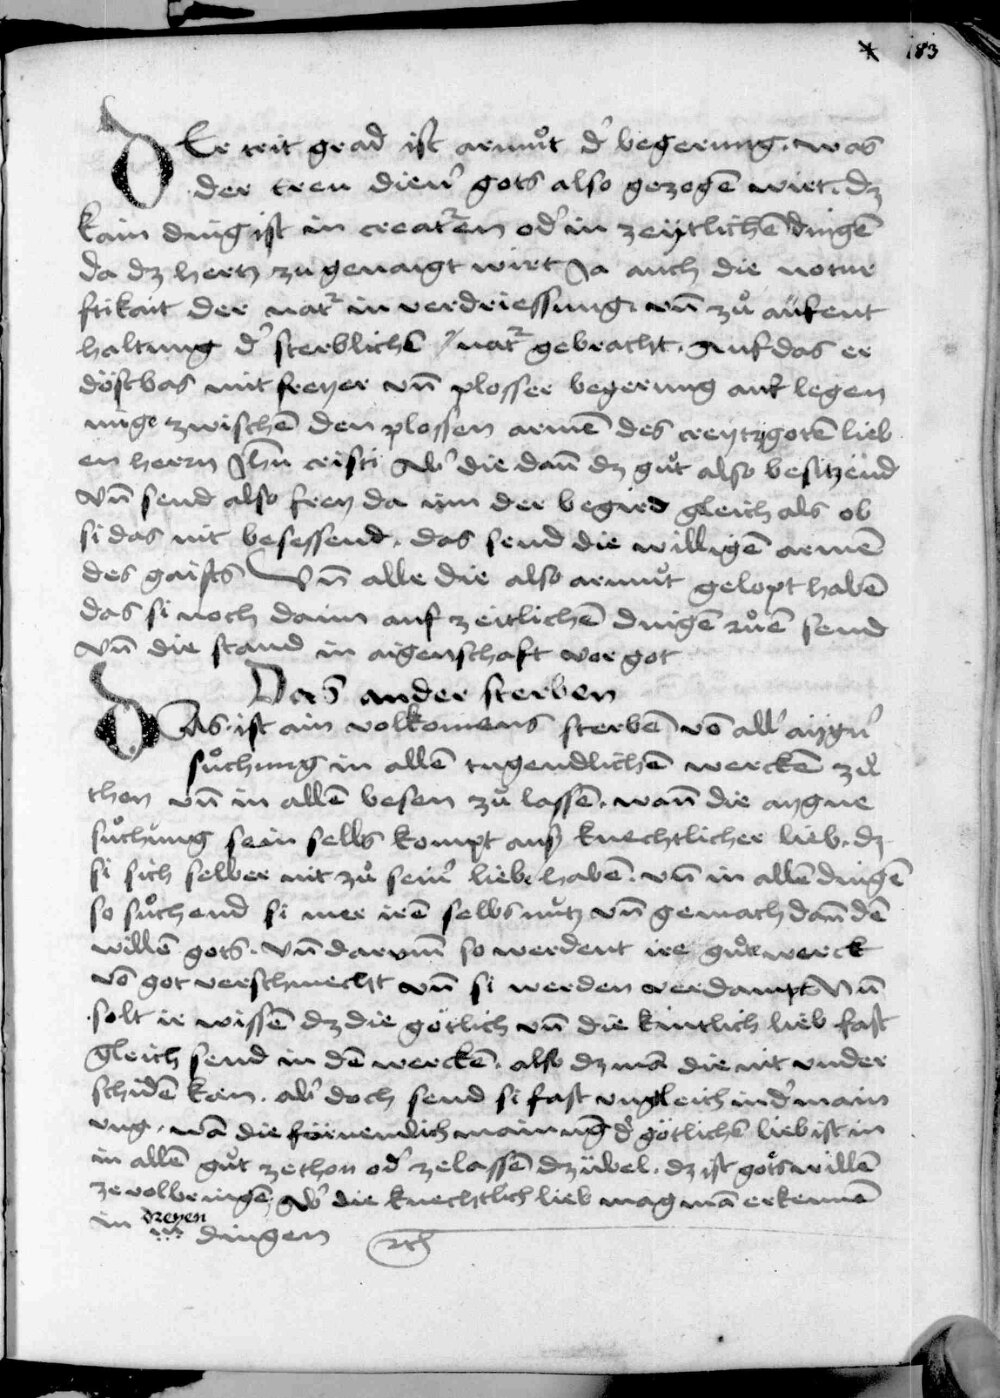 183
DEr trit grad ist armuͦt dˀ begerung. was
der treu dienˀ gots also gezogē wirt. dz
kain ding ist in creatˀen odˀ in zeytlichē dingē
da dz hertz zu genaigt wirt Ja auch die notur
ftikait der natˀ in verdriessung. vn̄ zuͦ aufent
haltung dˀ sterblichē natˀ gebracht. Auf das er
döstbas mit freyer vn̄ plosser begerung auf legen
müge zwischē den plossen armē des creytzgotē lieb
en herrn Jhū cristi Abˀ die dan̄ dz guͦt also besitzend
vn̄ send also frey da im der begird gleich als ob
si das nit besessend. das send die willigē armē
des gaists Vn̄ alle die also armuͦt gelopt habē
das si noch dann auf zeitlichē dingē ruͦē send
vn̄ die stand in aigenschaft vor got
Das ander sterben
DAs ist ain volkomens sterbē vō allˀ aygnˀ
suͦchung in allē tugendlichē werckē zuͦ
thon vn̄ in allē besen zuͦ lassē. wan̄ die aygne
suͦchung sein selbs kompt auß knechtlicher lieb. dz
si sich selber nit zuͦ seinˀ liebe habē. vn̄ in allē dingē
so suͦchend si mer irē selbs nutz vn̄ gemach dan̄ dē
willē gots. vn̄ darvm̄ so werdent ire guͦte werck
vō got verschmecht vn̄ si werden verdampt Vn̄
solt ir wissē dz die götlich vn̄ die kintlich lieb fast
gleich send in dē werckē. also dz mā die nit vnder
schidē kan. abˀ doch send si fast vngleich in dˀ main
vng. wā die fürnemlich mainūg dˀ götlichē lieb ist in
in allē guͦt zethon odˀ zelassē dz übel. dz ist gots willē
zevolbringē Abˀ die knechtlich lieb mag mā erkennē
in dreyen dingen